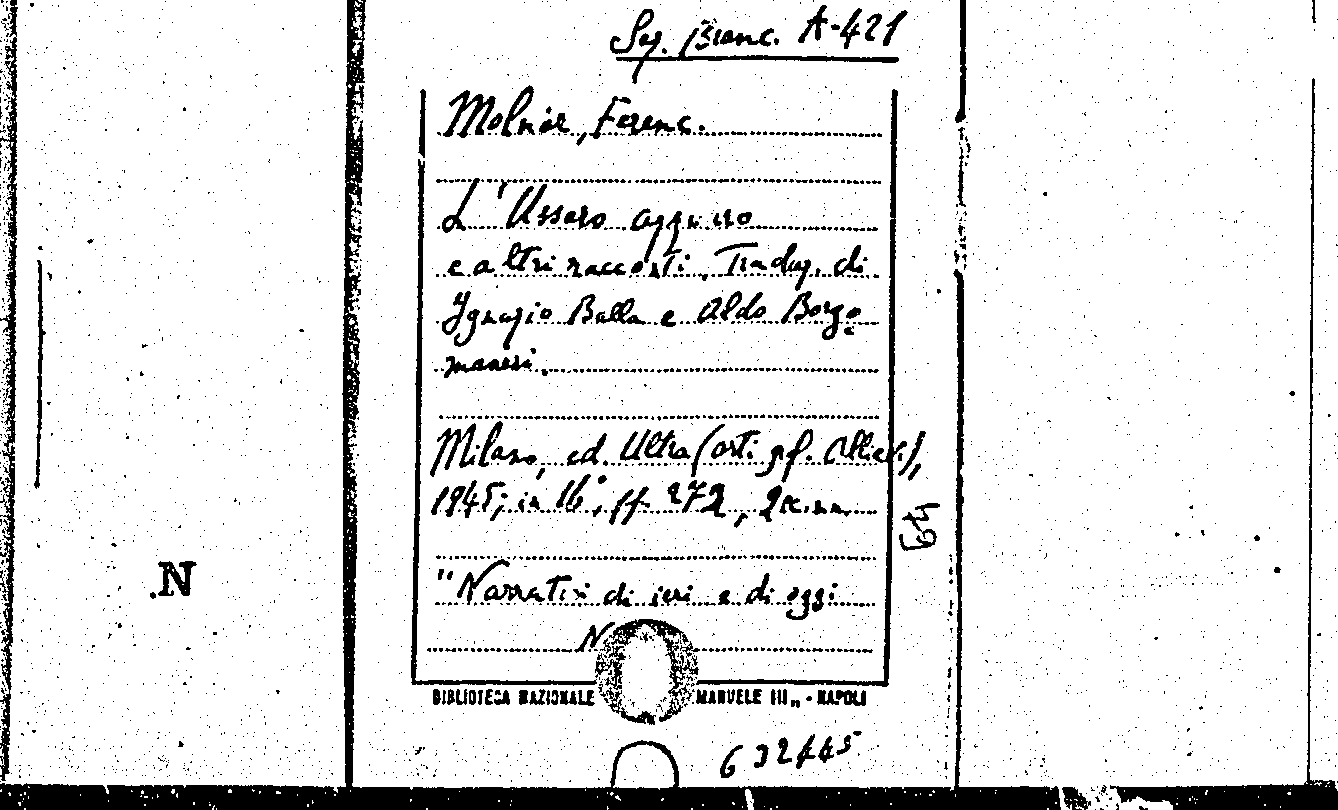 Seg. Bianc. A-421
Molnàr, Ferenc.
L'Ussaro azzurro
e altri racconti. Traduz. di
Ignazio Balla e Aldo Borgo
maneri.
Milano, ed. Ultra (arti gf. Allievi),
1945; in 16°, pp. 272, 2 c. nn.
"Narratori di ieri e di oggi
N
BIBLIOTECA NAZIONALE MANUELE III„ - NAPOLI
632445
.N